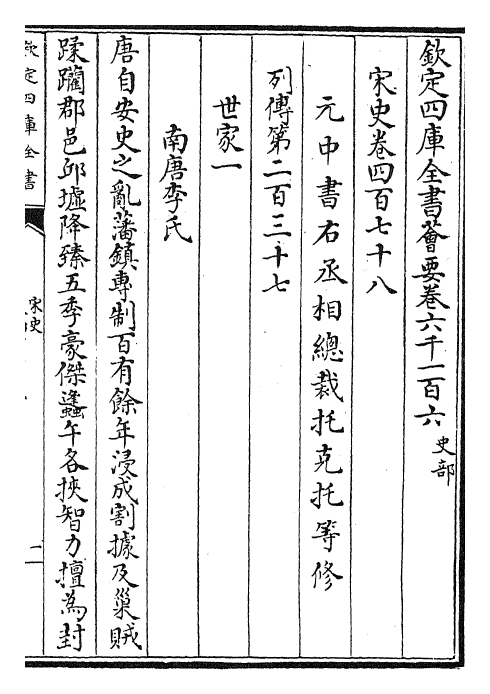 欽定四庫全書薈要卷六千一百六 史部
宋史卷四百七十八
元中書右丞相總裁托克托等修
列傳第二百三十七
世家一
南唐李氏
唐自安史之亂藩鎮專制百有餘年浸成割據及巢賊
蹂躪郡邑邱墟降臻五季豪傑蠭午各挾智力擅為封
欽定四庫全書
宋史